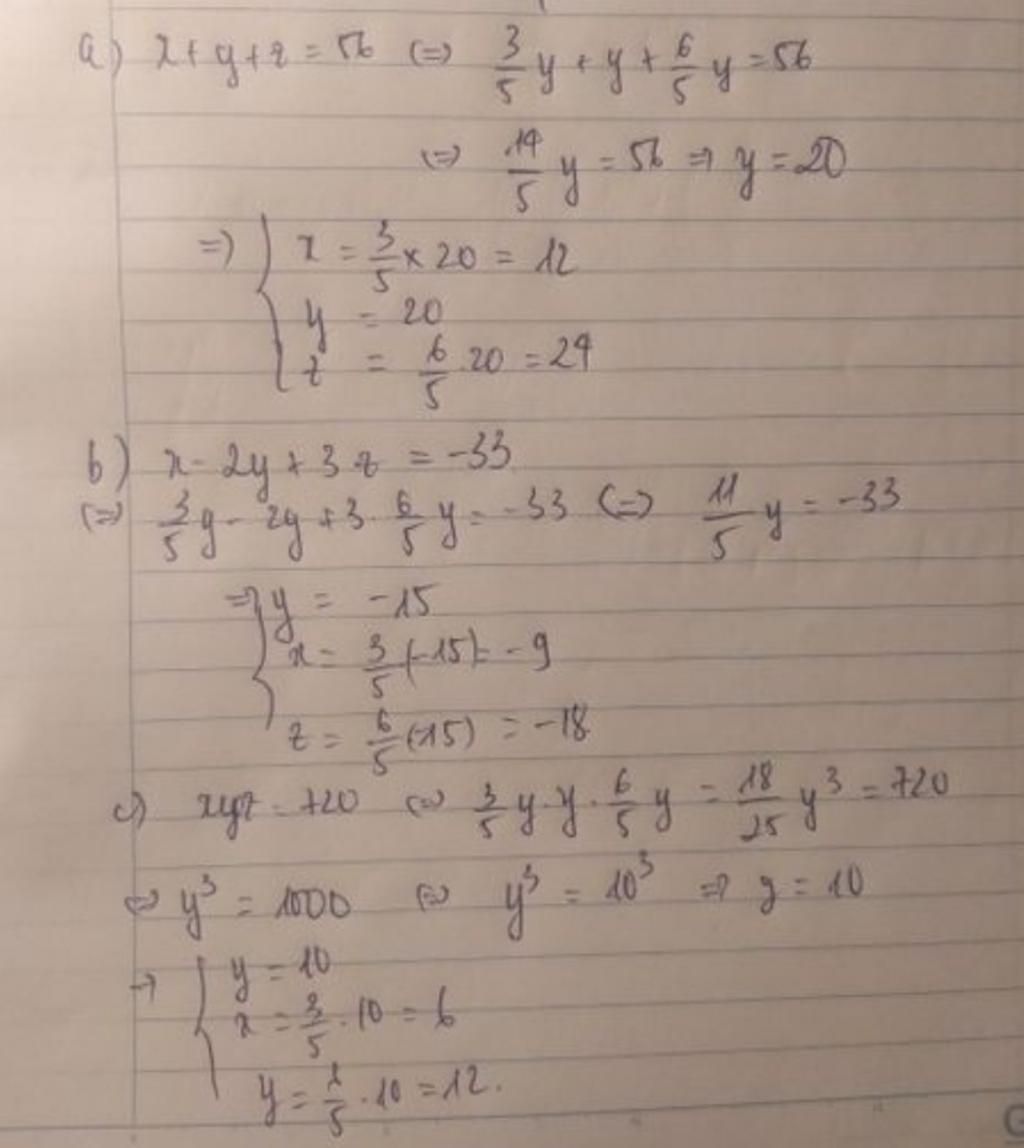 a) x + y + z = 56 (=) 3/5 y + y + 6/5 y = 56
(=) 14/5 y = 56 => y = 20
=) { x = 3/5 × 20 = 12
y = 20
z = 6/5 . 20 = 24
b) x - 2y + 3 z = -33
(=) 3/5 y - 2y + 3 . 6/5 y = -33 (=) 11/5 y = -33
=> { y = -15
x = 3/5 (-15) = -9
z = 6/5 (-15) = -18
c) xyz = 720 <=> 3/5 y . y . 6/5 y = 18/25 y³ = 720
<=> y³ = 1000 <=> y³ = 10³ => y = 10
→ { y = 10
x = 3/5 . 10 = 6
y = /5 . 10 = 12.